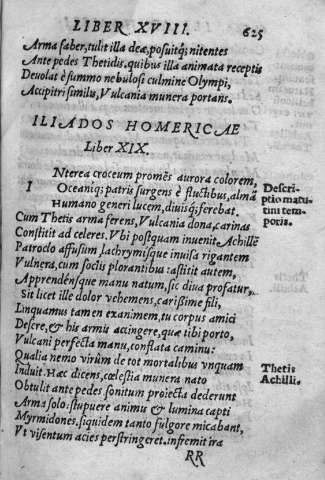 LIBER XVIII. 625
Arma faber, tulit illa deæ, posuitq; nitentes
Ante pedes Thetidis. quibus illa animata receptis
Deuolat è summo nebulosi culmine Olympi,
Accipitri similis, Vulcania munera portans.
ILIADOS HOMERICAE
Liber XIX.
INterea croceum promēs aurora colorem,
Oceaniq; patris surgens è fluctibus, alma
Humano generi lucem, diuisq; ferebat.
Descri-
ptio matu-
tini tem-
poris.
Cum Thetis arma ferens, Vulcania dona, carinas
Constitit ad celeres. Vbi postquam inuenit Achillē
Patroclo affusum lachrymisque inuisa rigantem
Vulnera, cum socijs plorantibus astitit autem,
Apprendēnsque manu natum, sic diua profatur,
Sit licet ille dolor vehemens, carißime fili,
Linquamus tamen exanimem, tu corpus amici
Desere, & his armis accingere, quæ tibi porto,
Vulcani perfecta manu, conflata camino:
Qualia nemo virûm de tot mortalibus vnquam
Induit. Hæc dicens, cœlestia munera nato
Thetis
Achilli.
Obtulit ante pedes sonitum proiecta dederunt
Arma solo: stupuere animus & lumina capti
Myrmidones, siquidem tanto fulgore micabant,
Vt visentum acies perstringeret. infremit ira
RR